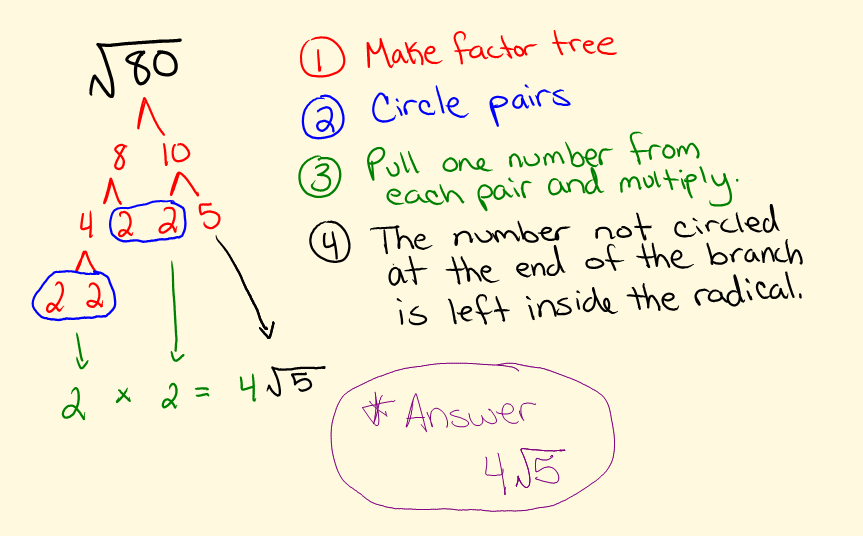 √80
8 10
4 2 2 5
2 2
2 × 2 = 4√5
① Make factor tree
② Circle pairs
③ Pull one number from
each pair and multiply.
④ The number not circled
at the end of the branch
is left inside the radical.
* Answer
4√5